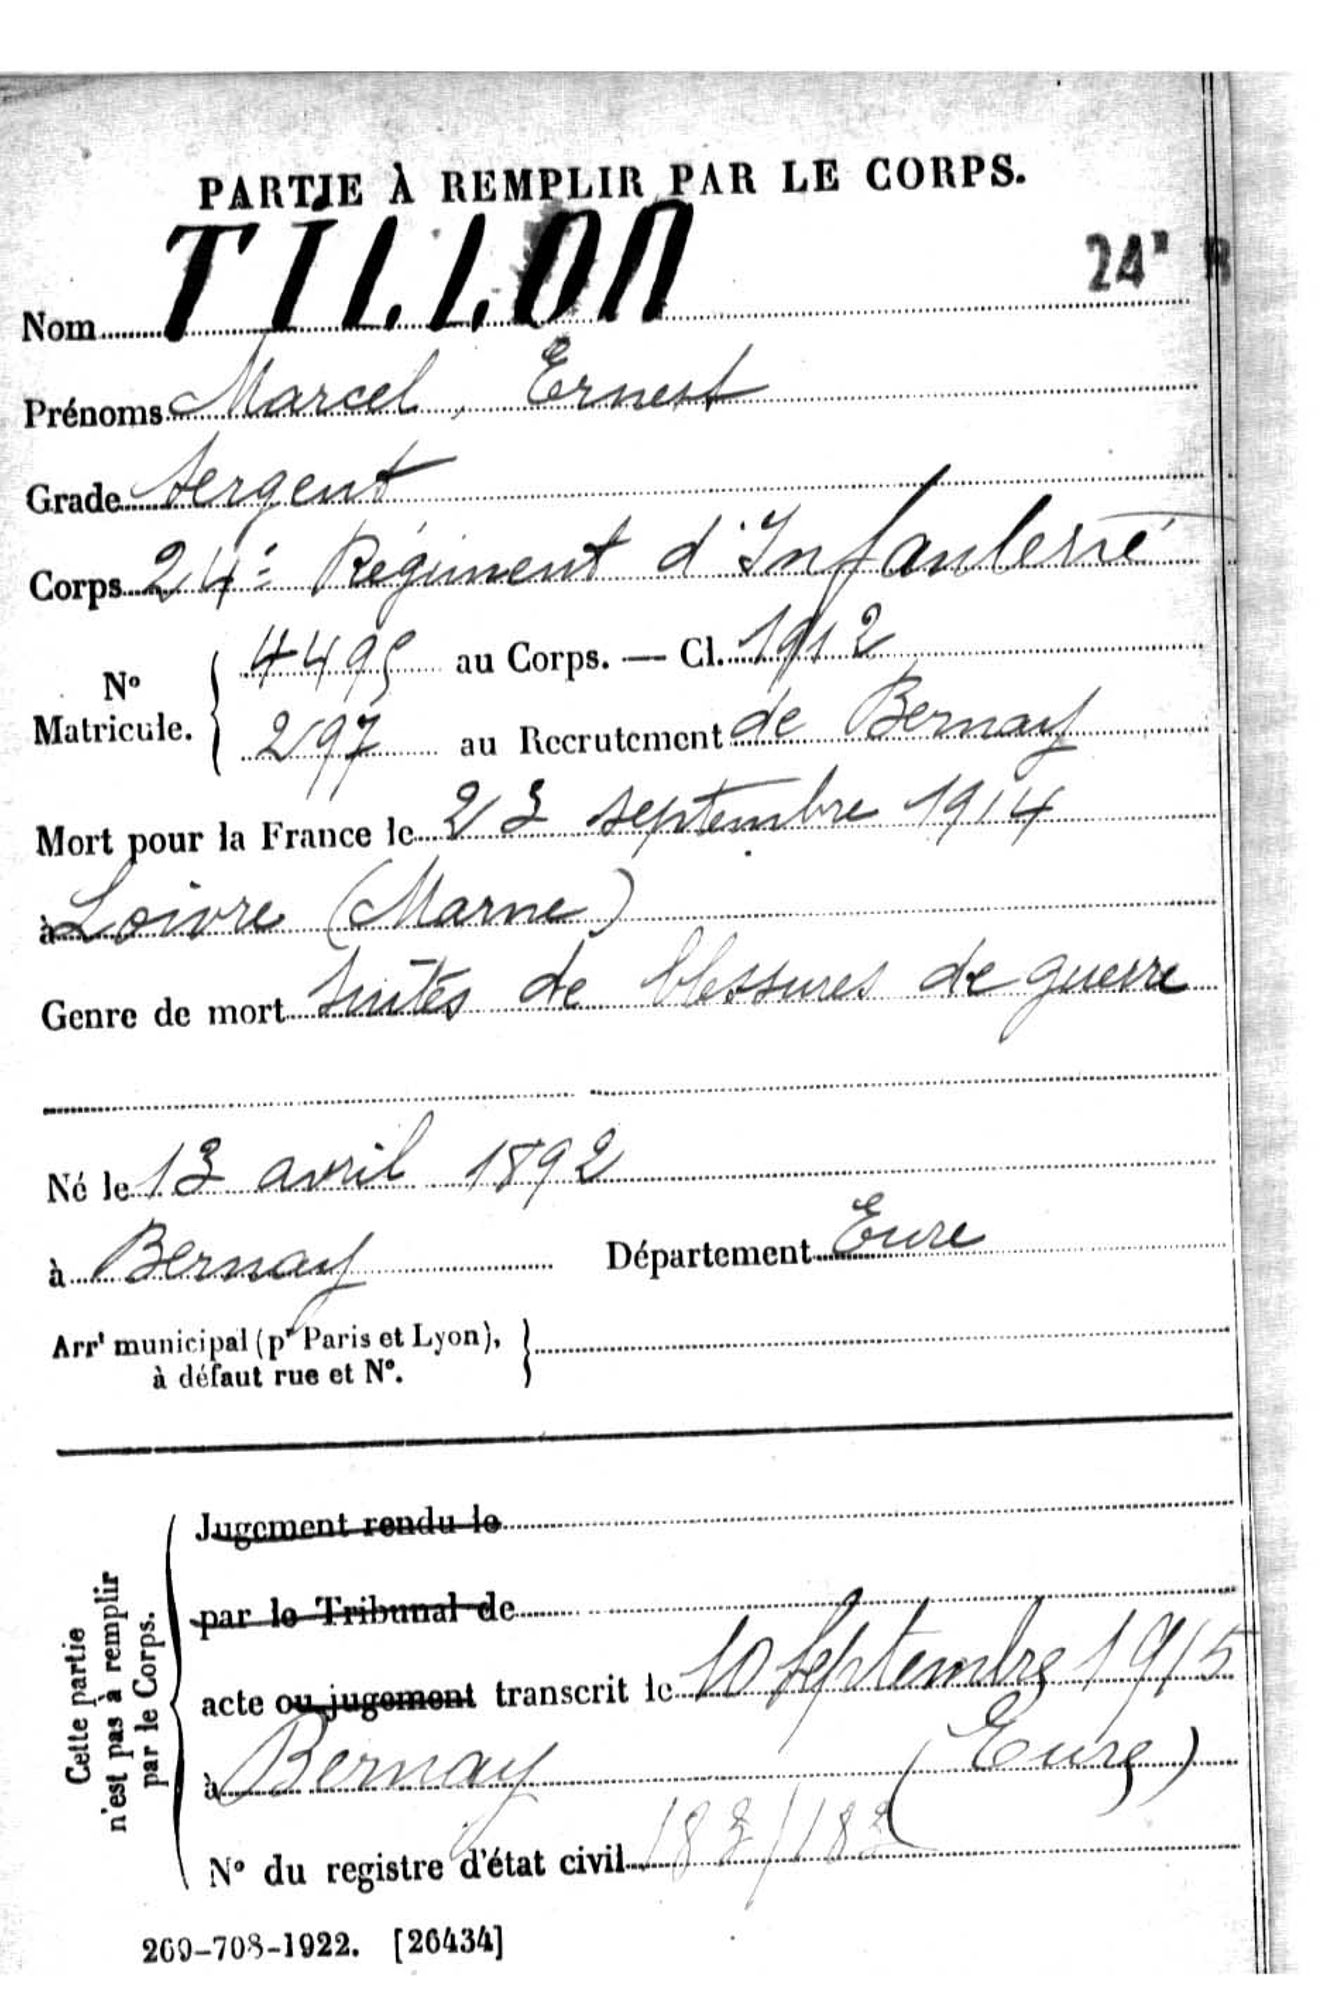 PARTIE À REMPLIR PAR LE CORPS.
24e R
Nom TILLON
Prénoms Marcel, Ernest
Grade Sergent
Corps 24e Régiment d'Infanterie
No Matricule. { 4495 au Corps. — Cl. 1912
297 au Recrutement de Bernay
Mort pour la France le 23 septembre 1914
à Loivre (Marne)
Genre de mort suites de blessures de guerre
Né le 13 avril 1892
à Bernay Département Eure
Arrt municipal (pr Paris et Lyon), }
à défaut rue et No.
Cette partie
n'est pas à remplir
par le Corps.
Jugement rendu le
par le Tribunal de
acte ou jugement transcrit le 10 Septembre 1915
à Bernay (Eure)
No du registre d'état civil
269-708-1922. [26434]